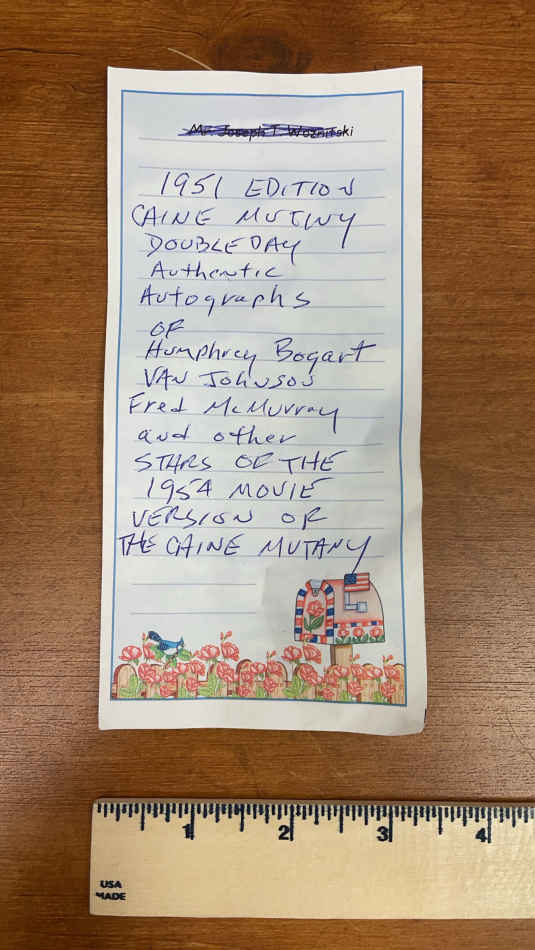 Mr. Joseph T. Woznitski
1951 EDITION
CAINE MUTINY
DOUBLEDAY
Authentic
Autographs
OF
Humphrey Bogart
VAN JOHNSON
Fred McMurray
and other
STARS OF THE
1954 MOVIE
VERSION OF
THE CAINE MUTANY
1 2 3 4
USA
MADE